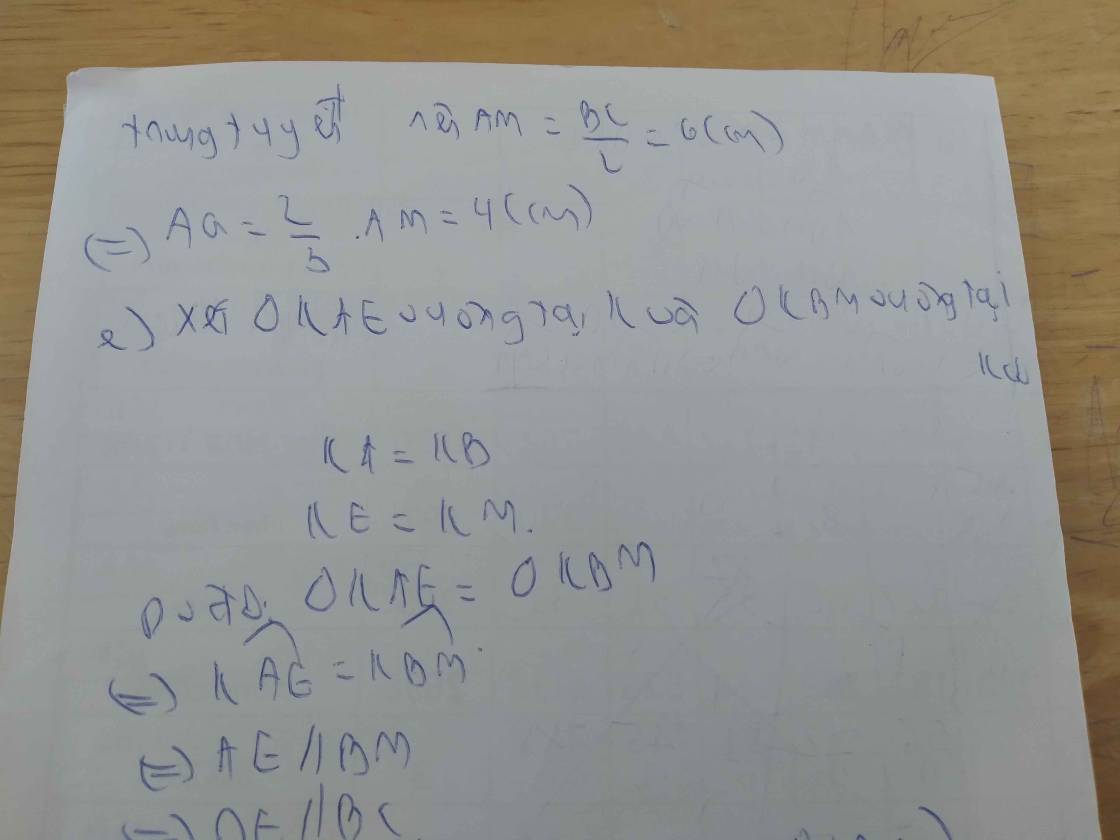 trung tuyến nên AM = BC/2 = 6(cm)
(=) AG = 2/3 . AM = 4(cm)
e) Xét Δ KAE vuông tại K và Δ KBM vuông tại
K có
KA = KB
KE = KM.
Do đó: Δ KAE = Δ KBM
(=) KAE = KBM
(=) AE // BM
(=) AE // BC